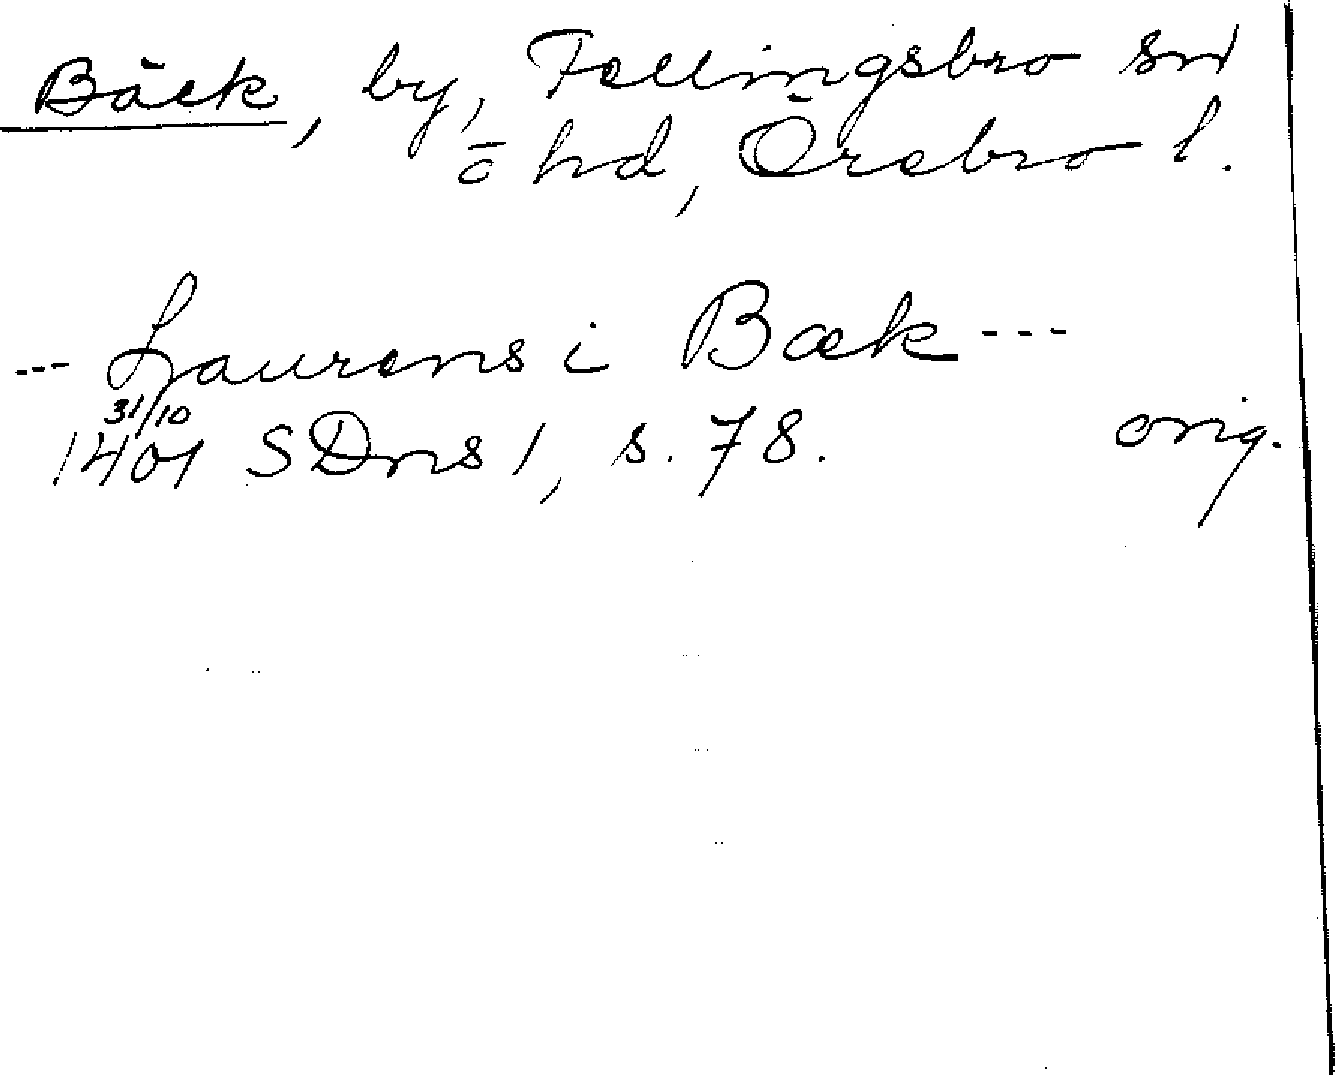 Bäck, by, Fellingsbro sn
o hd, Örebro l.
--- Laurens i Bæk ---
31/10
1401 SDns 1, s. 78. orig.